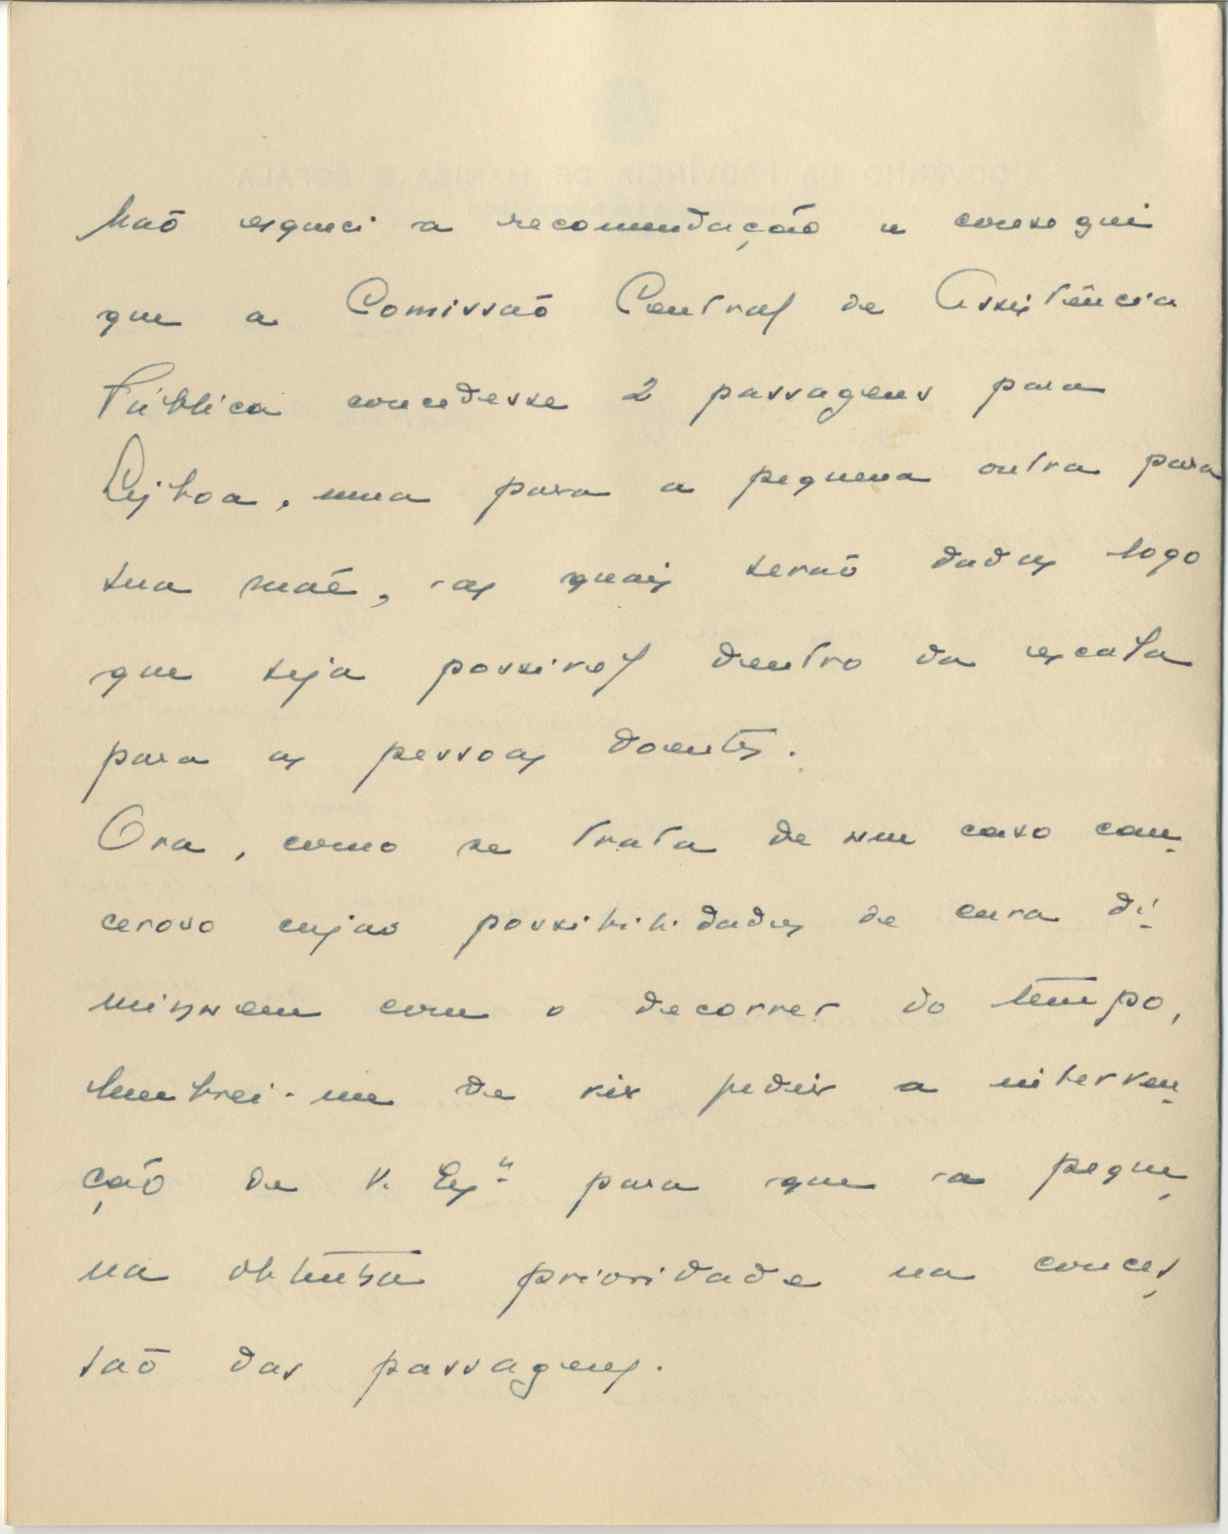 Não esqueci a recomendação e consegui
que a Comissão Central de Assistência
Pública concedesse 2 passagens para
Lisboa, uma para a pequena outra para
sua mãe, as quais serão dadas logo
que seja possivel dentro da escala
para as pessoas doentes.
Ora, como se trata de um caso can-
ceroso cujas possibilidades de cura di-
minuem com o decorrer do tempo,
lembrei-me de vir pedir a interven-
ção de V. Exª para que a peque-
na obtenha prioridade na conces-
são das passagens.